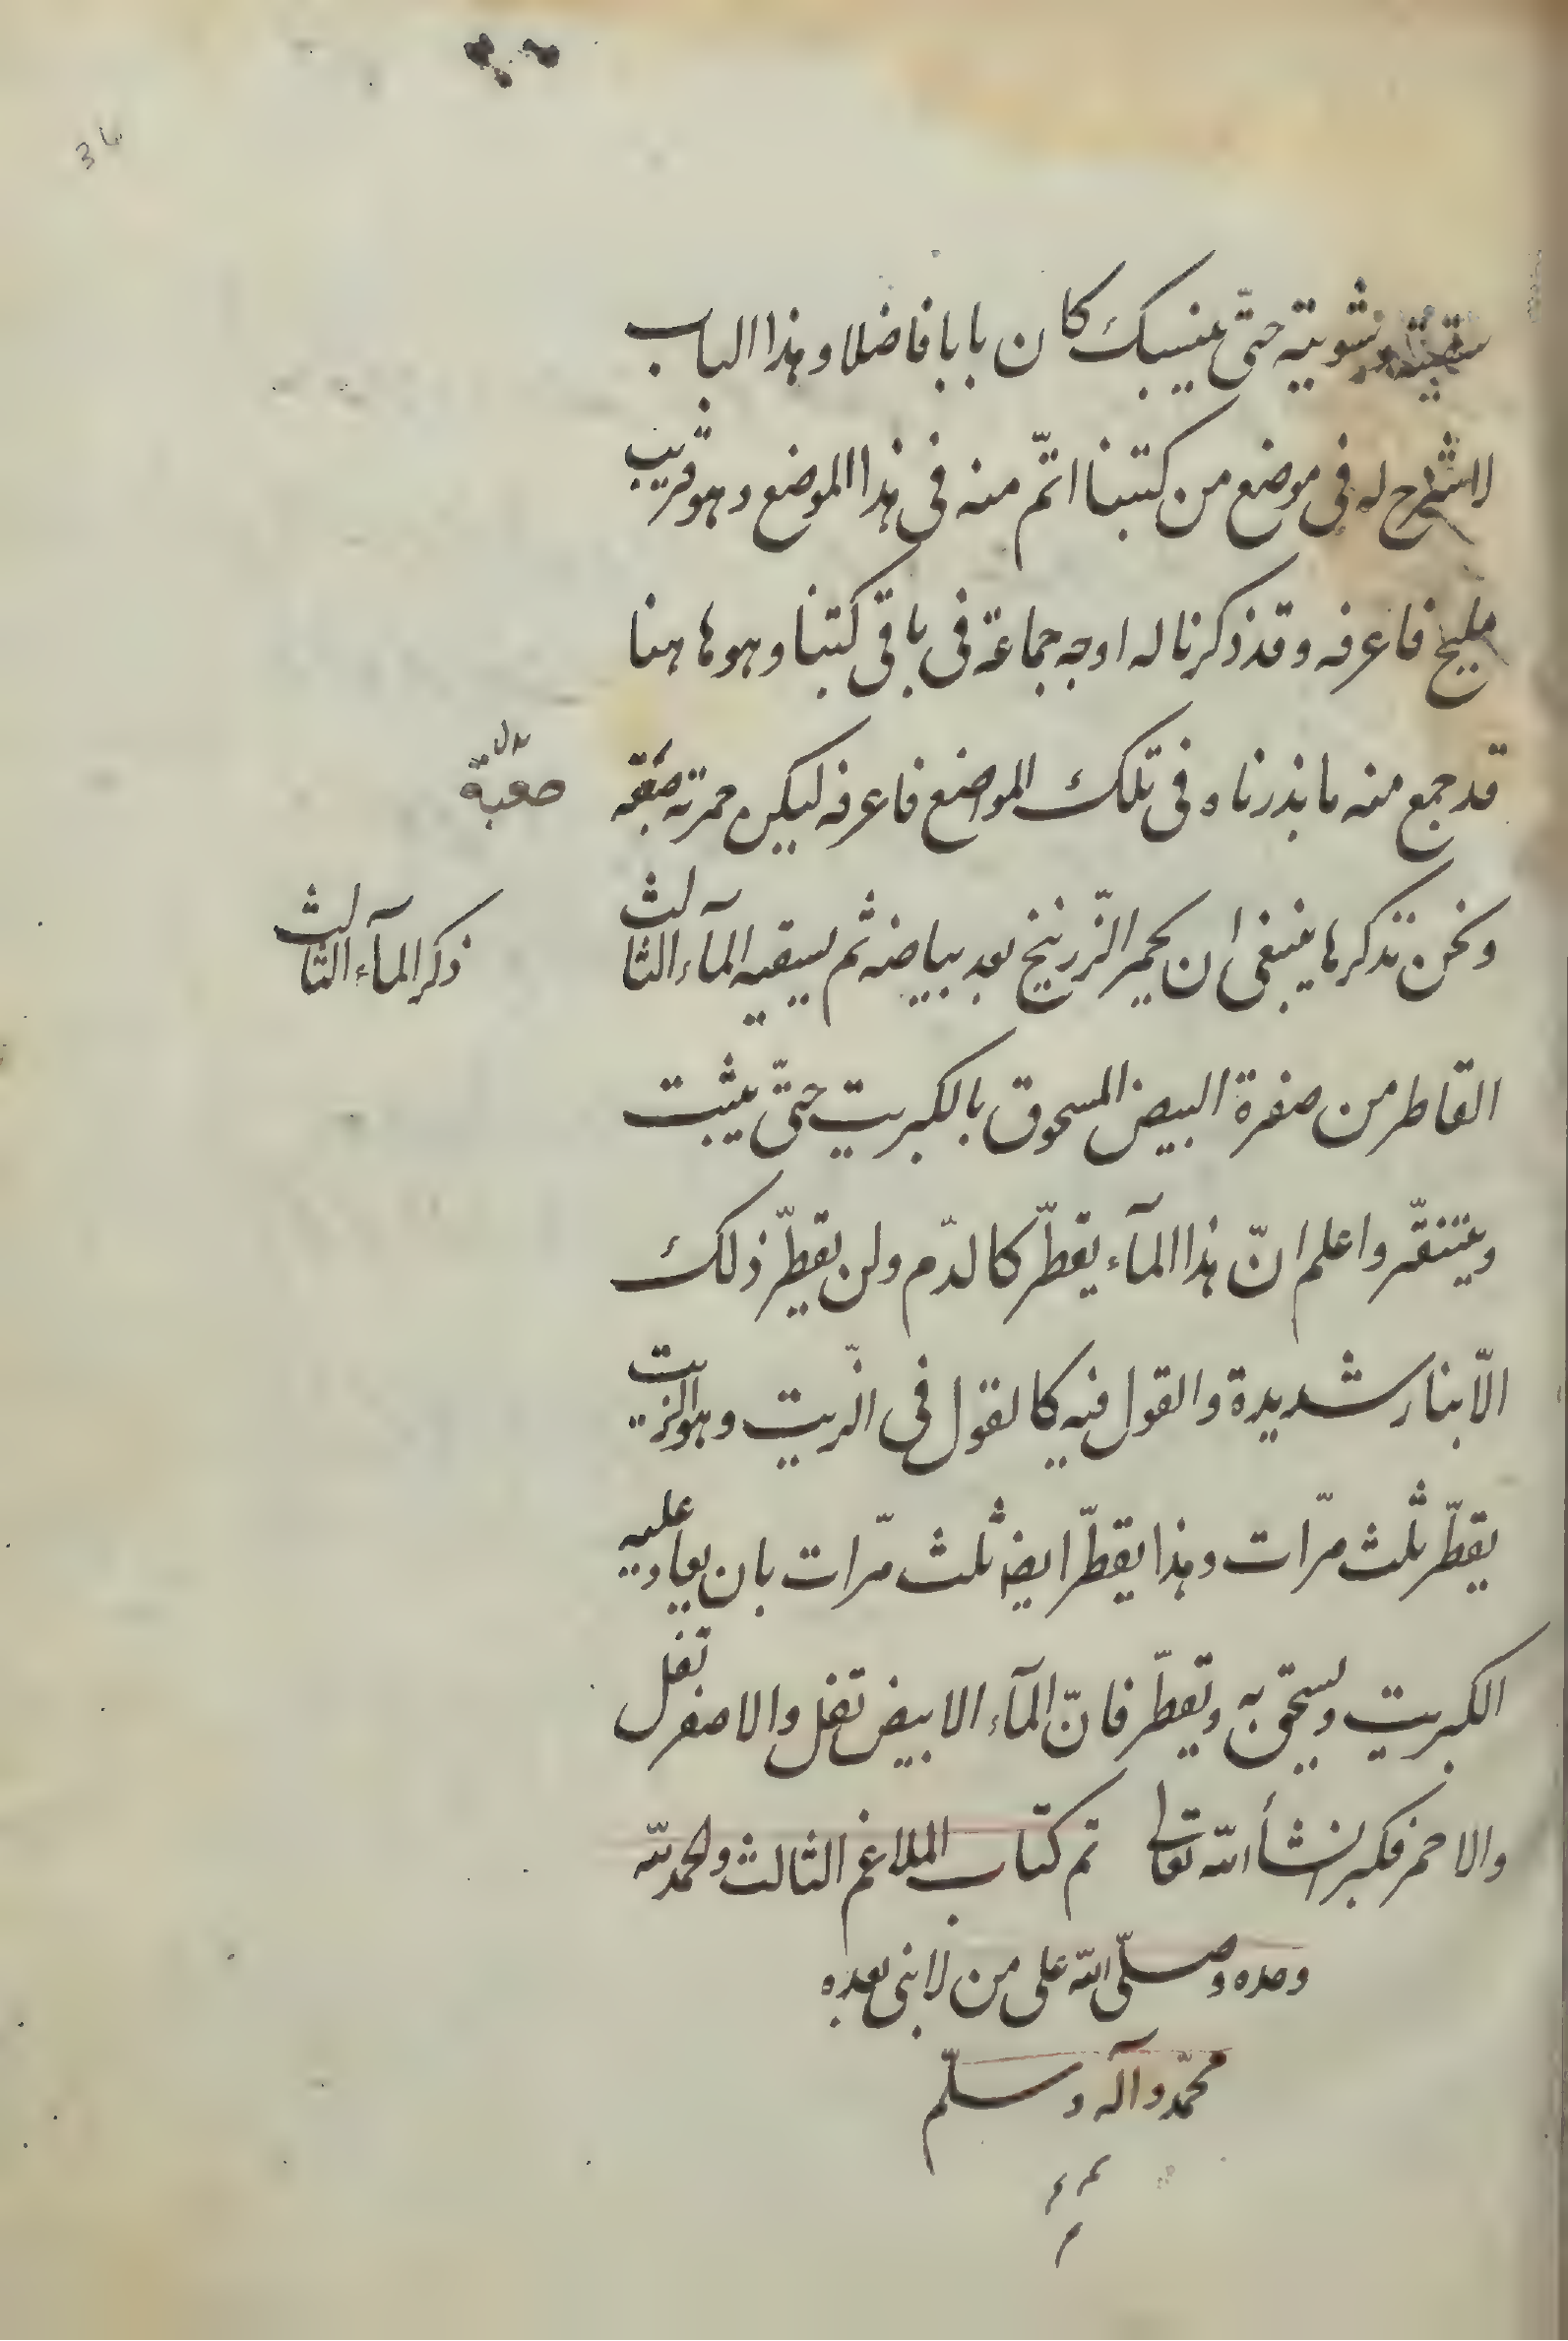 سقيته وشويته حتّى ينسبك كان بابا فاضلا وهذا الباب
لا شرح له فى موضع من كتبنا اتمّ منه فى هذا الموضع وهو قريب
مليح فاعرفه وقد ذكرنا له اوجه جماعة فى باقى كتبنا وهو هاهنا
قد جمع منه ما بذرناه فى تلك المواضع فاعرفه ليكن حمرته
صعبة
ونحن نذكرها ينبغى ان يحمر الزّرنيخ بعد بياضه ثم يسقيه المآء الثالث
ذكر المآء الثالث
القاطر من صفرة البيض المسحوق بالكبريت حتّى يثبت
واعلم انّ هذا المآء يقطّر كالدّم ولن يقطّر ذلك
الّا بنار شديدة والقول فيه كالقول فى الزّيت وهو الزيت
يقطّر ثلث مرّات وهذا يقطّر ايضا ثلث مرّات بان يعاد عليه
الكبريت ويسحق به ويقطّر فانّ المآء الابيض تفل والاصفر تفل
والاحمر فكبر انشأ الله تعالى تم كتاب الملاغم الثالث والحمد لله
وحده وصلّى الله على من لا نبى بعده
محمّد وآله وسلّم
36